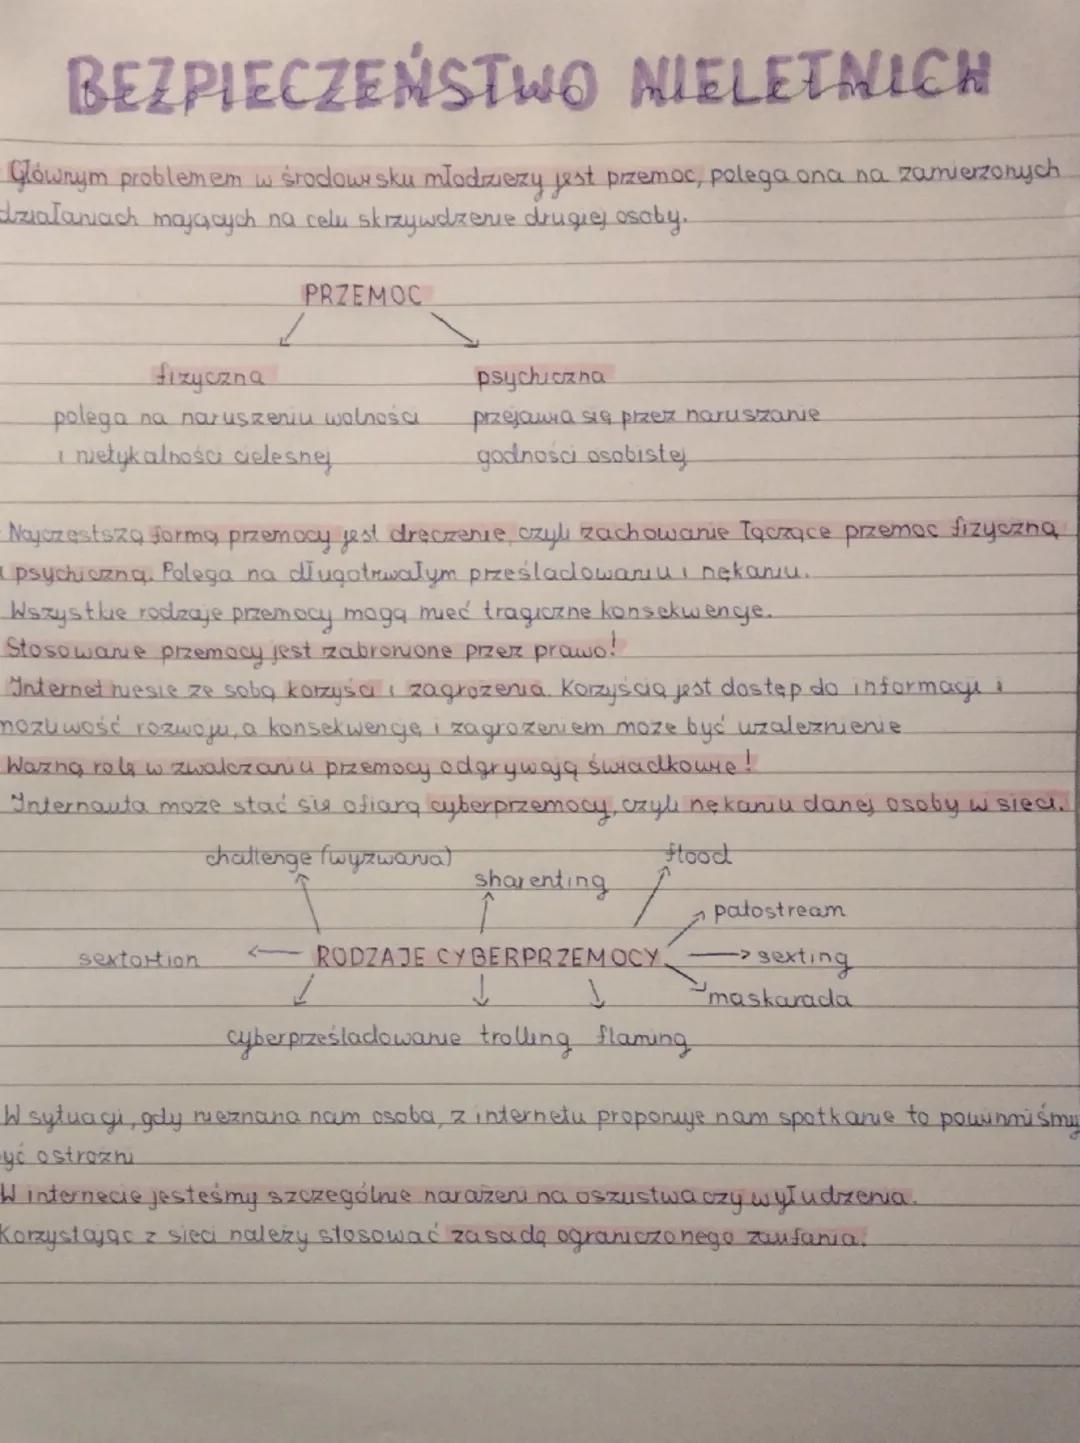 BEZPIECZEŃSTWO NIELETNICH
Głównym problemem w środowisku młodzieży jest przemoc, polega ona na zamierzonych
działaniach mających na celu skrzywdzenie drugiej osoby.
PRZEMOC
fizyczna psychiczna
polega na naruszeniu wolności przejawia się przez naruszanie
i nietykalności cielesnej godności osobistej
Najczęstszą formą przemocy jest dręczenie, czyli zachowanie łączące przemoc fizyczną
i psychiczną. Polega na długotrwałym prześladowaniu i nękaniu.
Wszystkie rodzaje przemocy mogą mieć tragiczne konsekwencje.
Stosowanie przemocy jest zabronione przez prawo!
Internet niesie ze sobą korzyści i zagrożenia. Korzyścią jest dostęp do informacji i
możliwość rozwoju, a konsekwencją i zagrożeniem może być uzależnienie
Ważną rolę w zwalczaniu przemocy odgrywają świadkowie!
Internauta może stać się ofiarą cyberprzemocy, czyli nękaniu danej osoby w sieci.
challenge (wyzwania) flood
sharenting
patostream
sextortion RODZAJE CYBERPRZEMOCY sexting
maskarada
cyberprześladowanie trolling flaming
W sytuacji, gdy nieznana nam osoba, z internetu proponuje nam spotkanie to powinniśmy
yć ostrożni
W internecie jesteśmy szczególnie narażeni na oszustwa czy wyłudzenia.
Korzystając z sieci należy stosować zasadę ograniczonego zaufania.